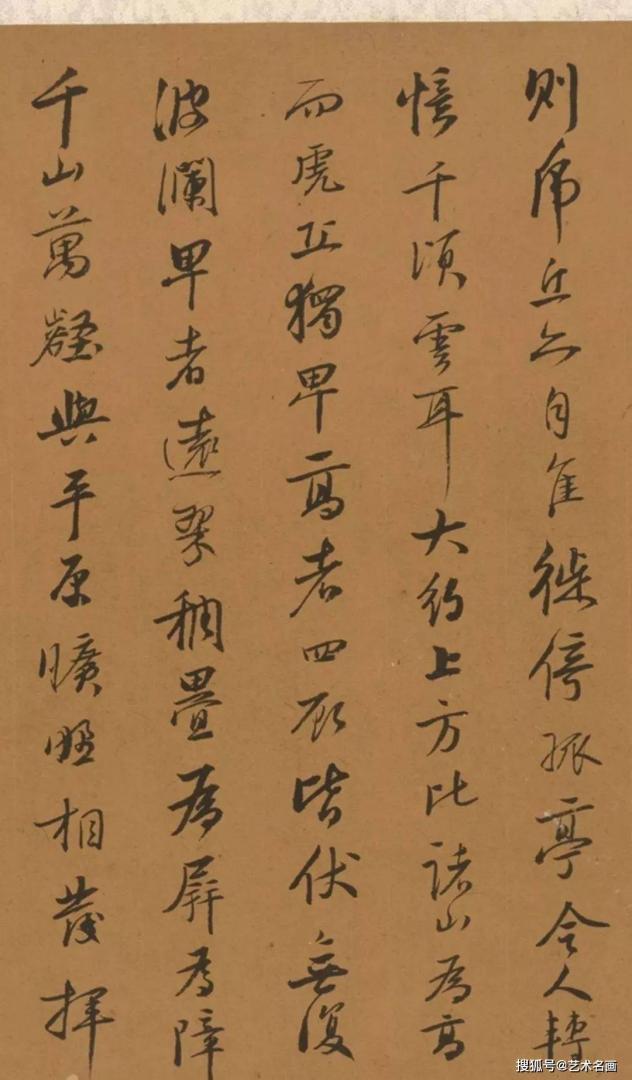 則虎丘亦自佳徙倚孤亭令人轉
悵千頃雲耳大約上方比諸山為高
而虎丘獨卑高者四顧皆伏無復
波瀾卑者遠翠稠疊為屏為障
千山萬壑與平原曠野相發揮
搜狐号@艺术名画